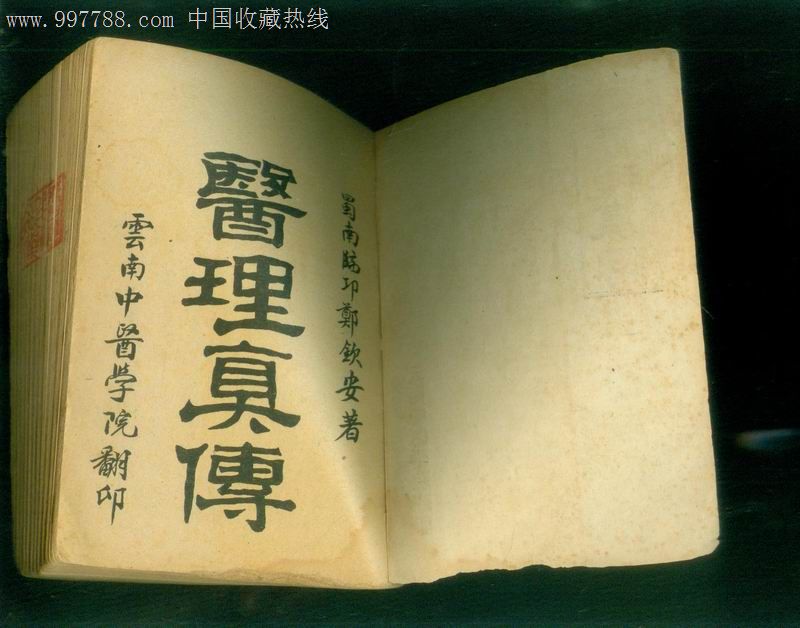 www.997788.com 中国收藏热线
蜀南臨邛鄭欽安著
醫理真傳
雲南中醫学院翻印